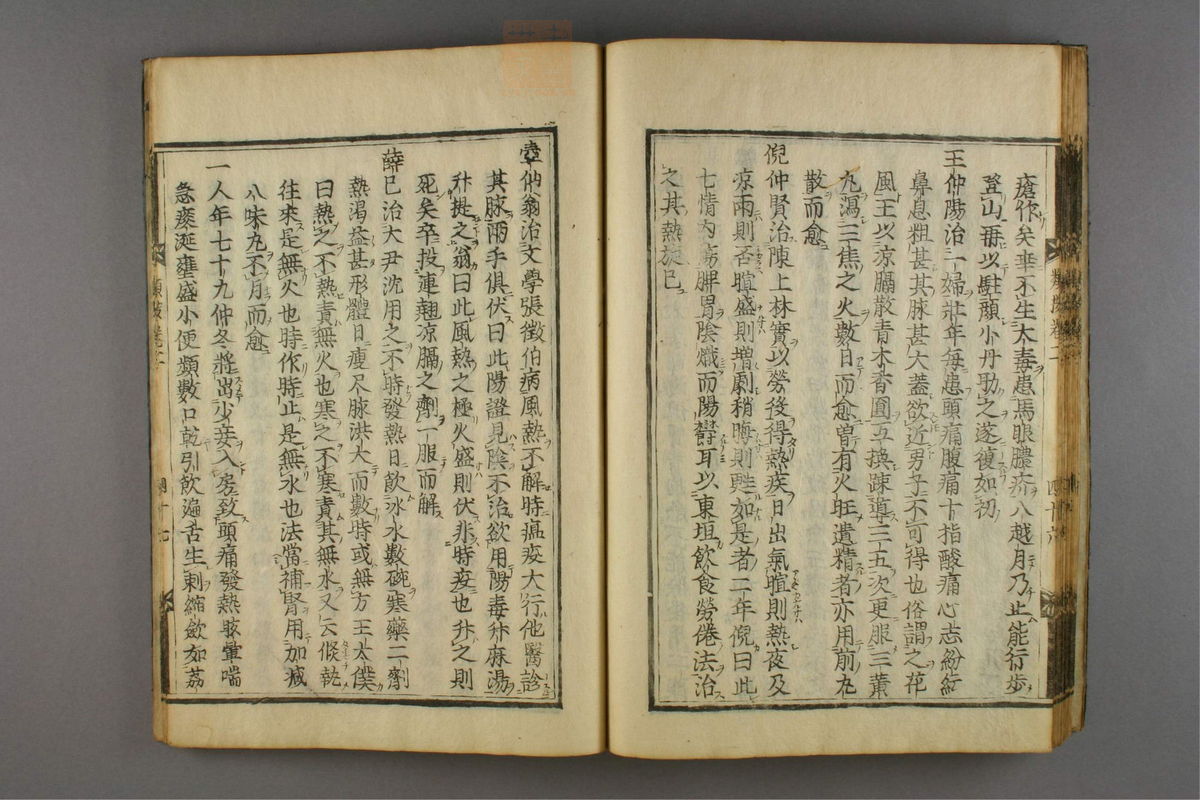 瘡作矣幸不生大毒患馬眼膿疥八越月乃止能行歩
登山毋以駐顔小丹助之遂復如初
王仲陽治一婦壯年毎患頭痛腹痛十指酸痛心志紛紜
鼻息粗甚其脉甚大蓋欲近男子不可得也俗謂之花
風王以凉膈散青木香圓互換踈導三五次更服三黄
丸瀉三焦之火數日而愈曽有火旺遺精者亦用前丸
散而愈
倪仲賢治陳上林實以勞後得熱疾日出氣暄則熱夜及
凉雨則否暄盛則増劇稍晦則甦如是者二年倪曰此
七情内傷脾胃陰熾而陽欝耳以東垣飲食勞倦法治
之其熱旋已
四十六
壺仙翁治文學張徴伯病風熱不解時瘟疫大行他醫診
其脉兩手倶伏曰此陽證見陰不治欲用陽毒升麻湯
升提之翁曰此風熱之極火盛則伏非時疫也升之則
死矣卒投連翹凉膈之劑一服而解
薛己治大尹沈用之不時發熱日飲冰水數碗寒藥二劑
熱渇益甚形體日瘦尺脉洪大而數時或無方王太僕
曰熱之不熱責無火也寒之不寒責其無水又云倐熱
往來是無火也時作時止是無水也法當補腎用加減
八味丸不月而愈
一人年七十九仲冬將出少妾入房致頭痛發熱眩暈喘
急痰涎壅盛小便頻數口乾引飲遍舌生刺縮歛如荔
四十七